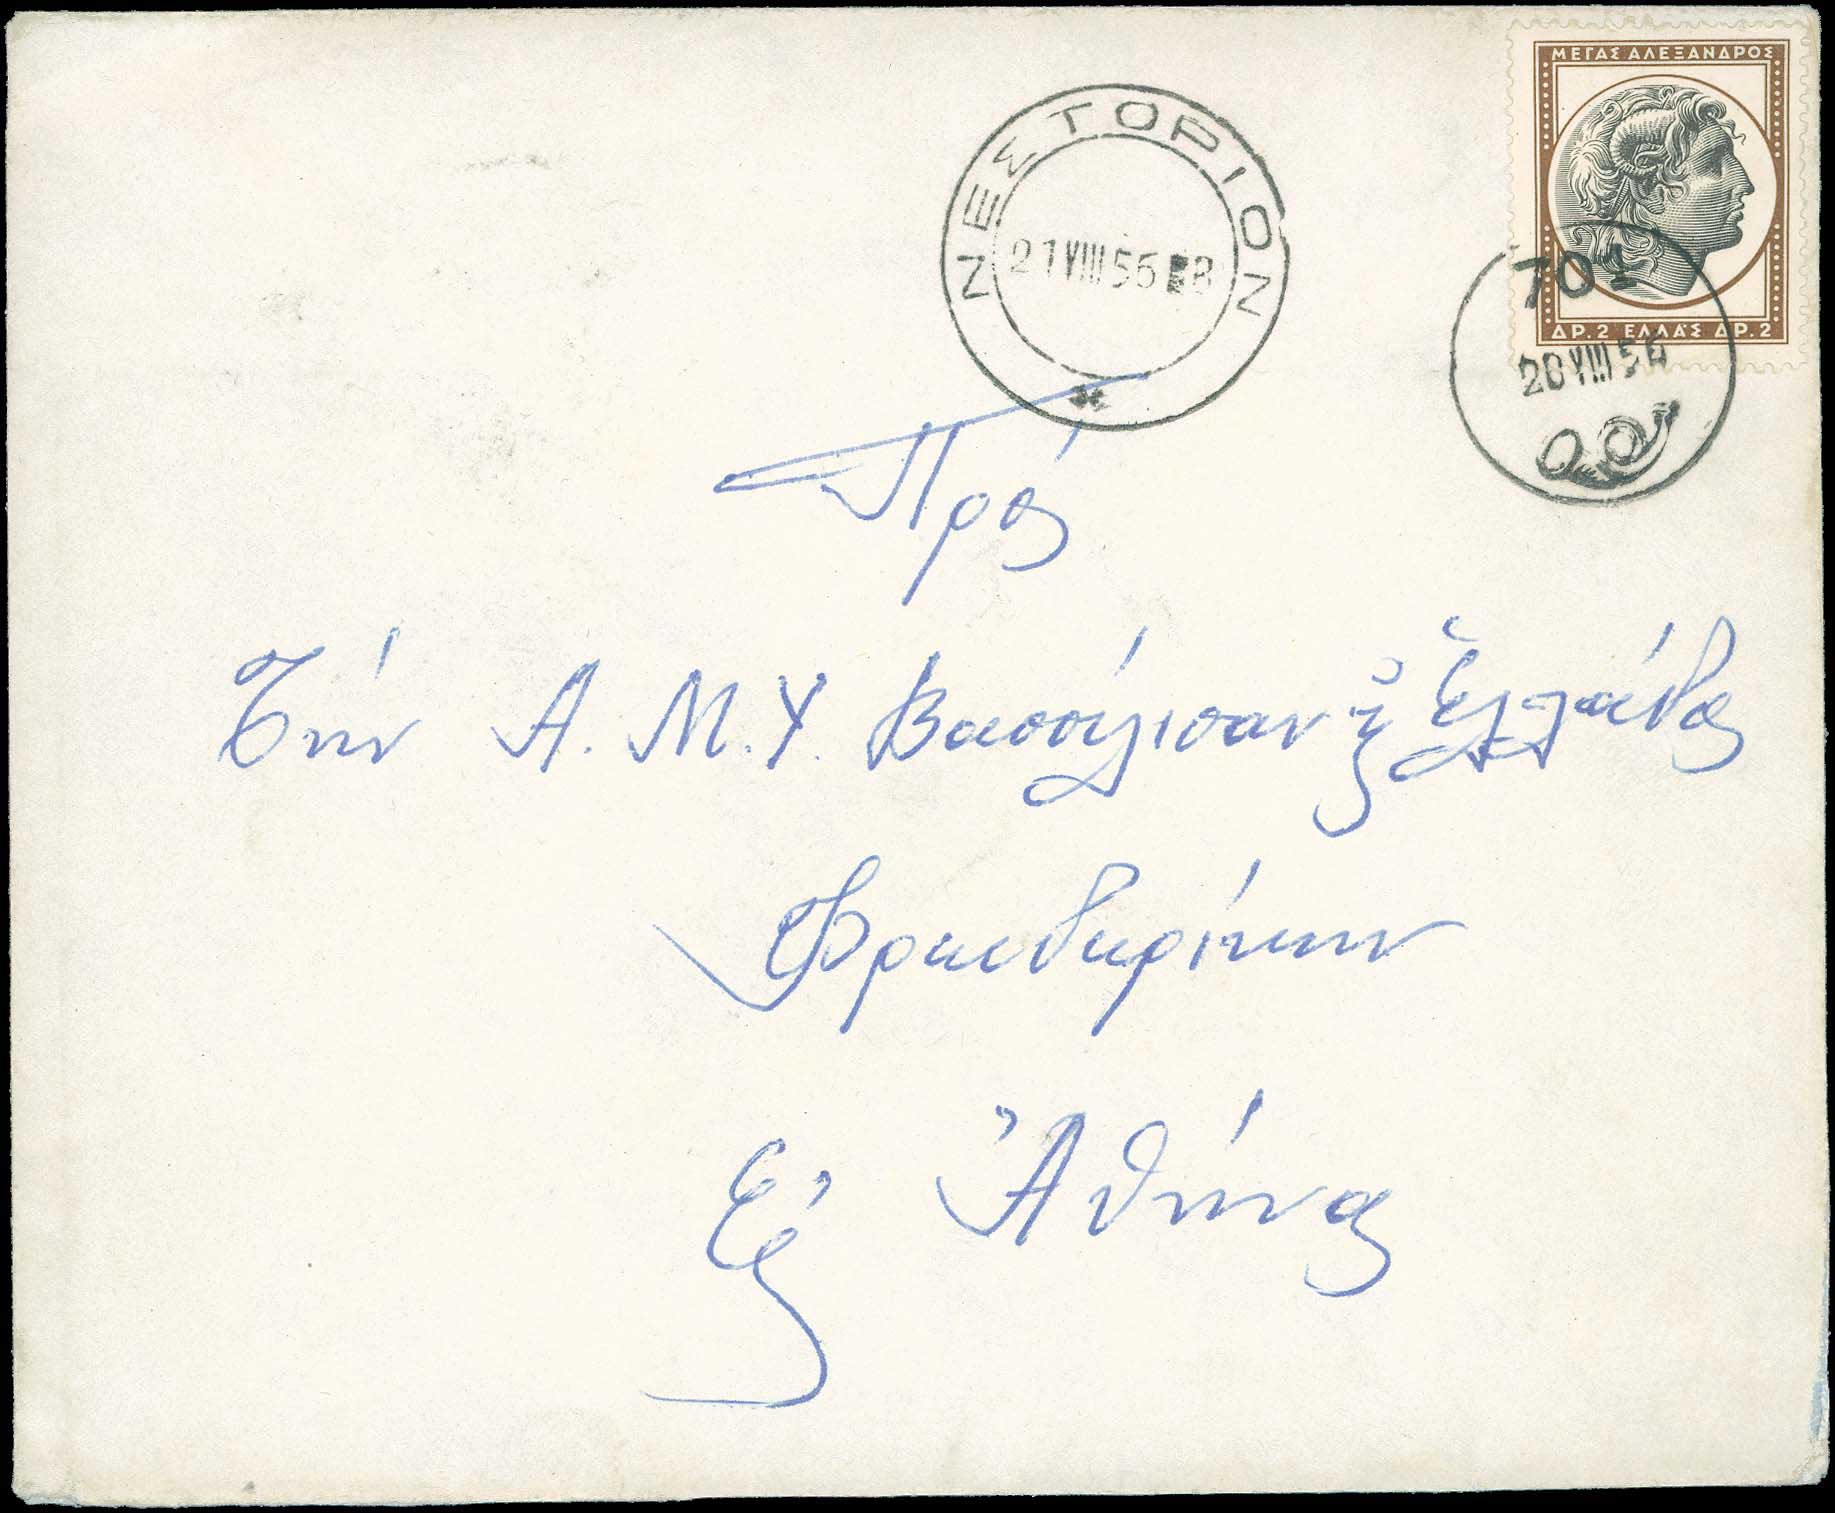 ΜΕΓΑΣ ΑΛΕΞΑΝΔΡΟΣ
ΔΡ. 2 ΕΛΛΑΣ ΔΡ. 2
ΝΕΣΤΟΡΙΟΝ
21 VIII 56 8
704
20 VIII 56
Πρός
Τήν Α. Μ. Υ. Βασσίλισαν τῆς Ἑλλάδος
Φρειδερίκην
Εἰς Ἀθήνας